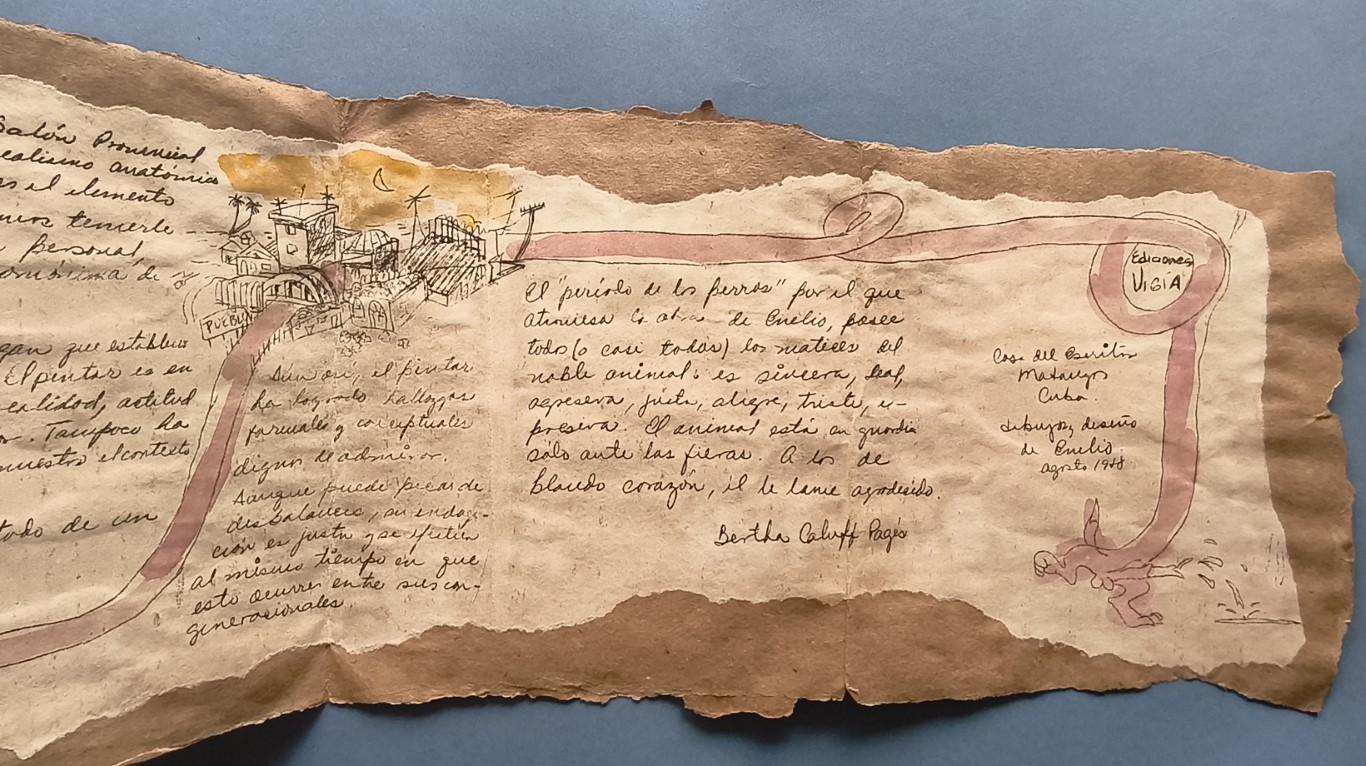 Salón Provincial
realismo anatómico
es el elemento
temerle
personal,
de
que establece
El pintar es en
realidad, actitud
Tampoco ha
muestra el contexto
todo de un
PUEBLO
Aun así, el pintar
ha logrado hallazgos
formales y conceptuales
dignos de admirar.
Aunque puede pecar de
desbalances, su indaga-
ción es justa y se
al mismo tiempo en que
esto ocurre entre sus con-
generacionales.
El "período de los perros" por el que
atraviesa la obra de Emilio, posee
todos (o casi todos) los matices del
noble animal: es sincera, leal,
agresiva, justa, alegre, triste,
El animal está en guardia
sólo ante las fieras. A los de
blando corazón, él le lame agradecido.
Bertha Caluff Pagés
Ediciones
VIGÍA
Casa del Escritor
Matanzas
Cuba.
dibujos, diseño
de Emilio
agosto